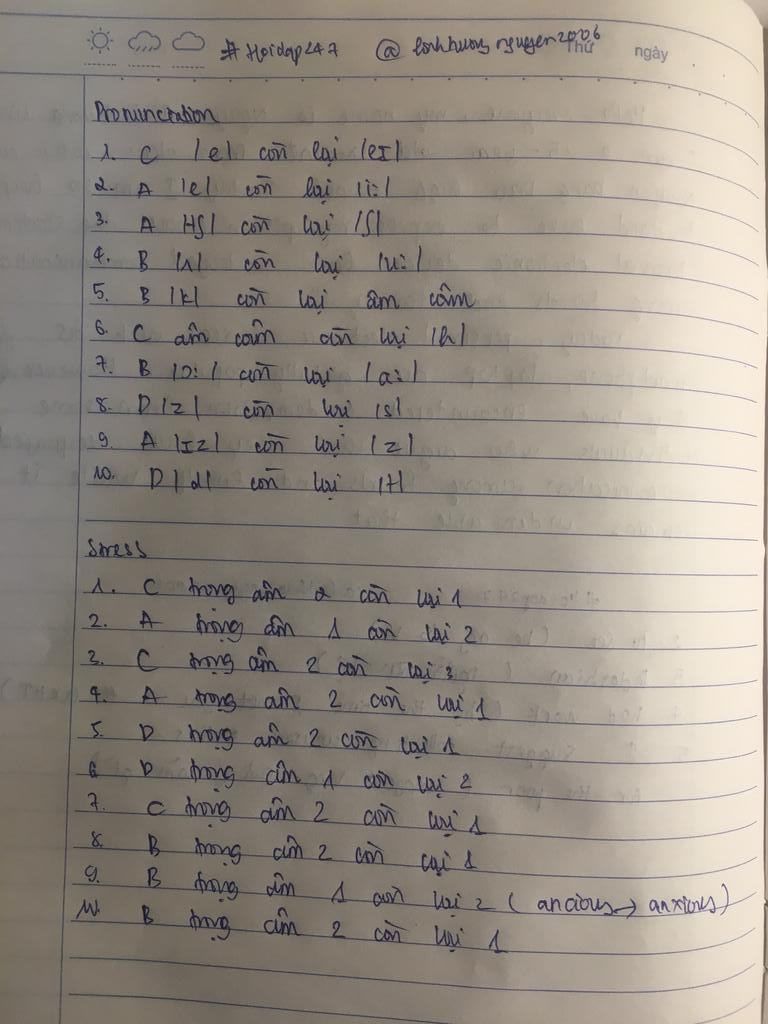 #Hoidap247 @ linhhuongnguyen2006 Thứ ngày
Pronunciation
1. C |e| còn lại |eI|
2. A |e| còn lại |i:|
3. A |tʃ| còn lại |ʃ|
4. B |ʌ| còn lại |u:|
5. B |k| còn lại âm câm
6. C âm câm còn lại |h|
7. B |ɔ:| còn lại |a:|
8. D |z| còn lại |s|
9. A |Iz| còn lại |z|
10. D |d| còn lại |t|
Stress
1. C trọng âm 2 còn lại 1
2. A trọng âm 1 còn lại 2
3. C trọng âm 2 còn lại 3
4. A trọng âm 2 còn lại 1
5. D trọng âm 2 còn lại 1
6 D trọng âm 1 còn lại 2
7. C trọng âm 2 còn lại 1
8. B trọng âm 2 còn lại 1
9. B trọng âm 1 còn lại 2 ( ancious → anxious)
10. B trọng âm 2 còn lại 1